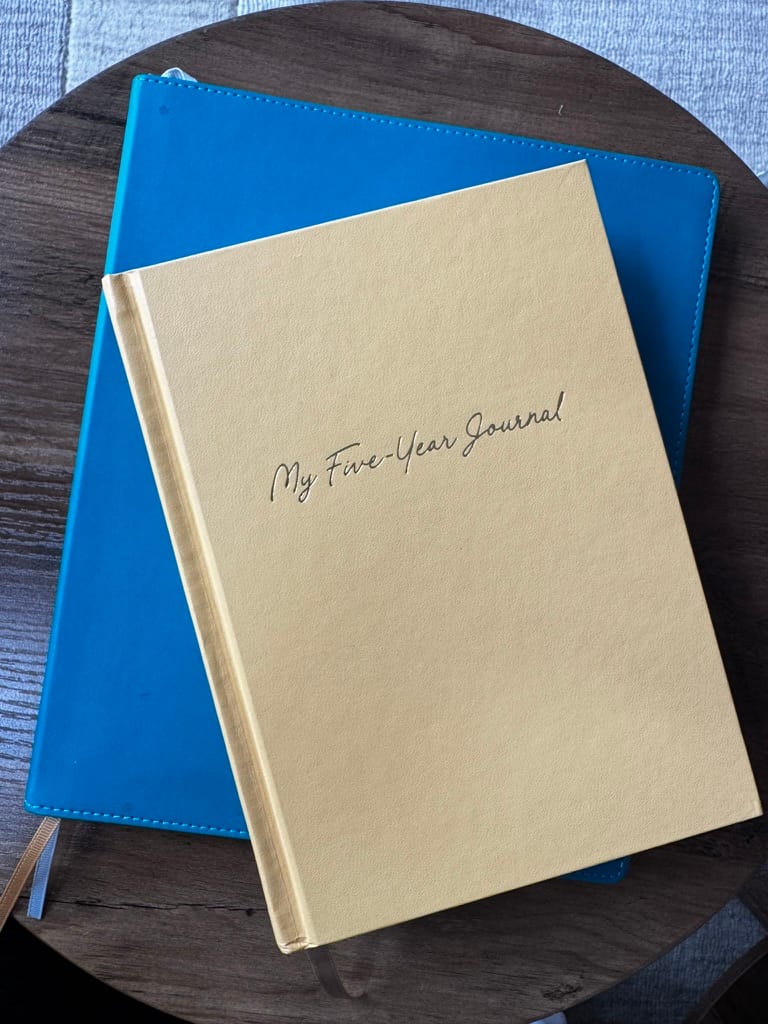 My Five-Year Journal